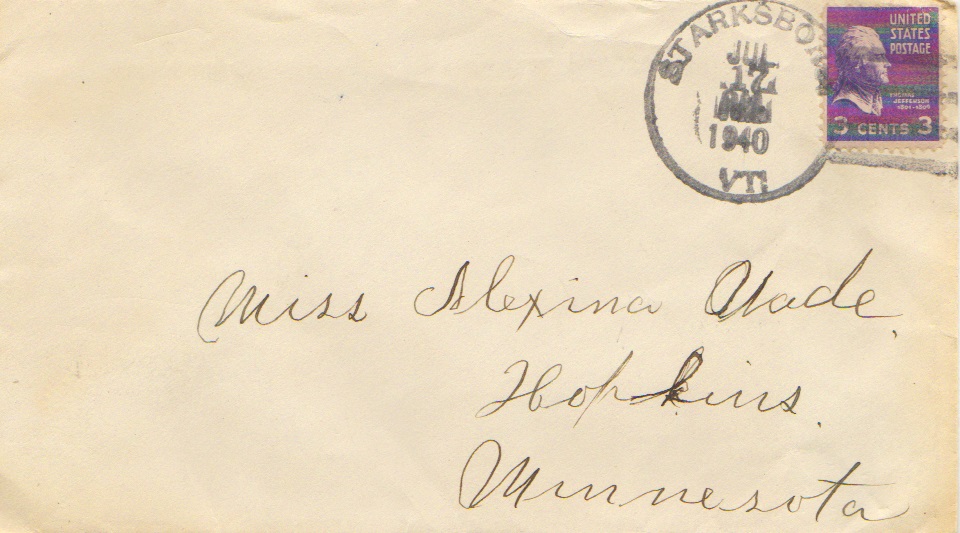 STARKSBORO
JUL
17
1940
VT.
UNITED
STATES
POSTAGE
THOMAS
JEFFERSON
1801-1809
3 CENTS 3
Miss Alexina Wade,
Hopkins,
Minnesota